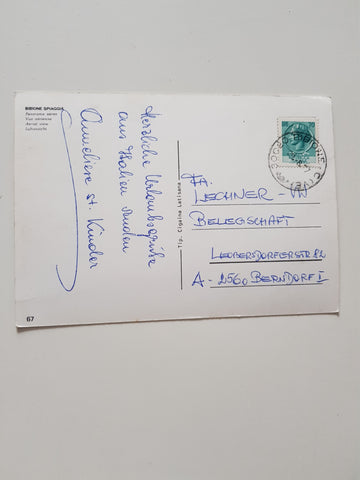 BIBIONE SPIAGGIA
Panorama aereo
Vue aérienne
Aerial view
Luftansicht
Herzliche Urlaubsgrüße
aus Italien senden
Anneliese st. Kinder
Tip. Gigalna Latisana
FA.
LECHNER - 
BELEGSCHAFT
LEOBERSDORFERSTR 82
A - 2560 BERNDORF I
67